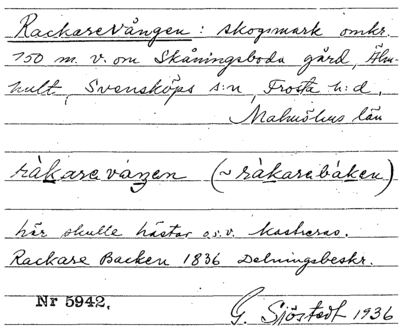 Rackarevången: skogsmark omkr.
150 m. v. om Skåningsboda gård, Älm-
hult, Svensköps s:n, Frosta h:d,
Malmöhus län
råkarevaŋen (~ råkarebaken)
här skulle hästar o.s.v. kastreras.
Rackare Backen 1836 Delningsbeskr.
Nr 5942.
G. Sjöstedt 1936